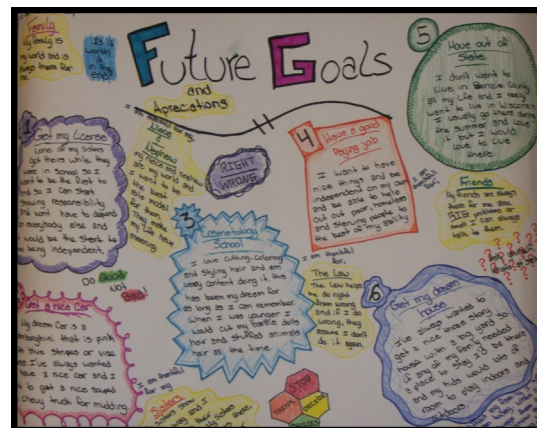 Family
My family is
my world and is
always there for
me.
Is it
worth it
in the
end?
Future Goals
and
Apreciations
5
Move out of
State.
I don't want to
live in Benzie County
all my life and I really
want to live in Wisconsin
I usually go there during
the summer and love
it but I would
love to live
there.
1
Get my License
None of my sisters
got theirs while they
were in school so I
want to be the first to
and so I can start
showing responsibility
and wont have to depend
on everybody else and
it would be the start to
me being independent.
I am thankful for my
Niece
&
Nephew
my niece and nephew
as I want to be
the best
role model
for them.
They make
my life have
meaning
RIGHT
WRONG
4
Have a good
Paying job
I want to have
nice things and be
independent on my own
and be able to help
out out poor homeless
and starving people to
the best of my ability
Friends
My friends are always
there for me also.
BIG problems or
small I can always
talk to them.
3
Cosmetology
School
I love cutting, coloring
and styling hair and am
very content doing it this
has been my dream for
as long as I can remember
When I was younger I
would cut my barbie dolls
hair and stuffed animals
hair all the time.
I am thankful
for:
The Law
The law helps
me do right
from wrong
and if I do
wrong, they
assure I don't
do it again.
6
Get my dream
house
I've always wanted to
get a nice three story
house with a big yard so
if any of my family needed
a place to stay I'd be there
and my kids would lots of
room to play indoors and
outdoors
DO Good
Not
Bad!
2
Get a nice Car
My dream car is a
Lamborghini that is pink
with blue stripes or vise
I've always wanted
have a nice car and I
want to get a nice souped
chevy truck for mudding
I am thankful
for my
Sisters
STOP
THINK
DECIDE